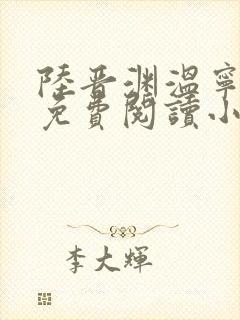 陸晋渊溫寧
免費閱讀小
李大輝